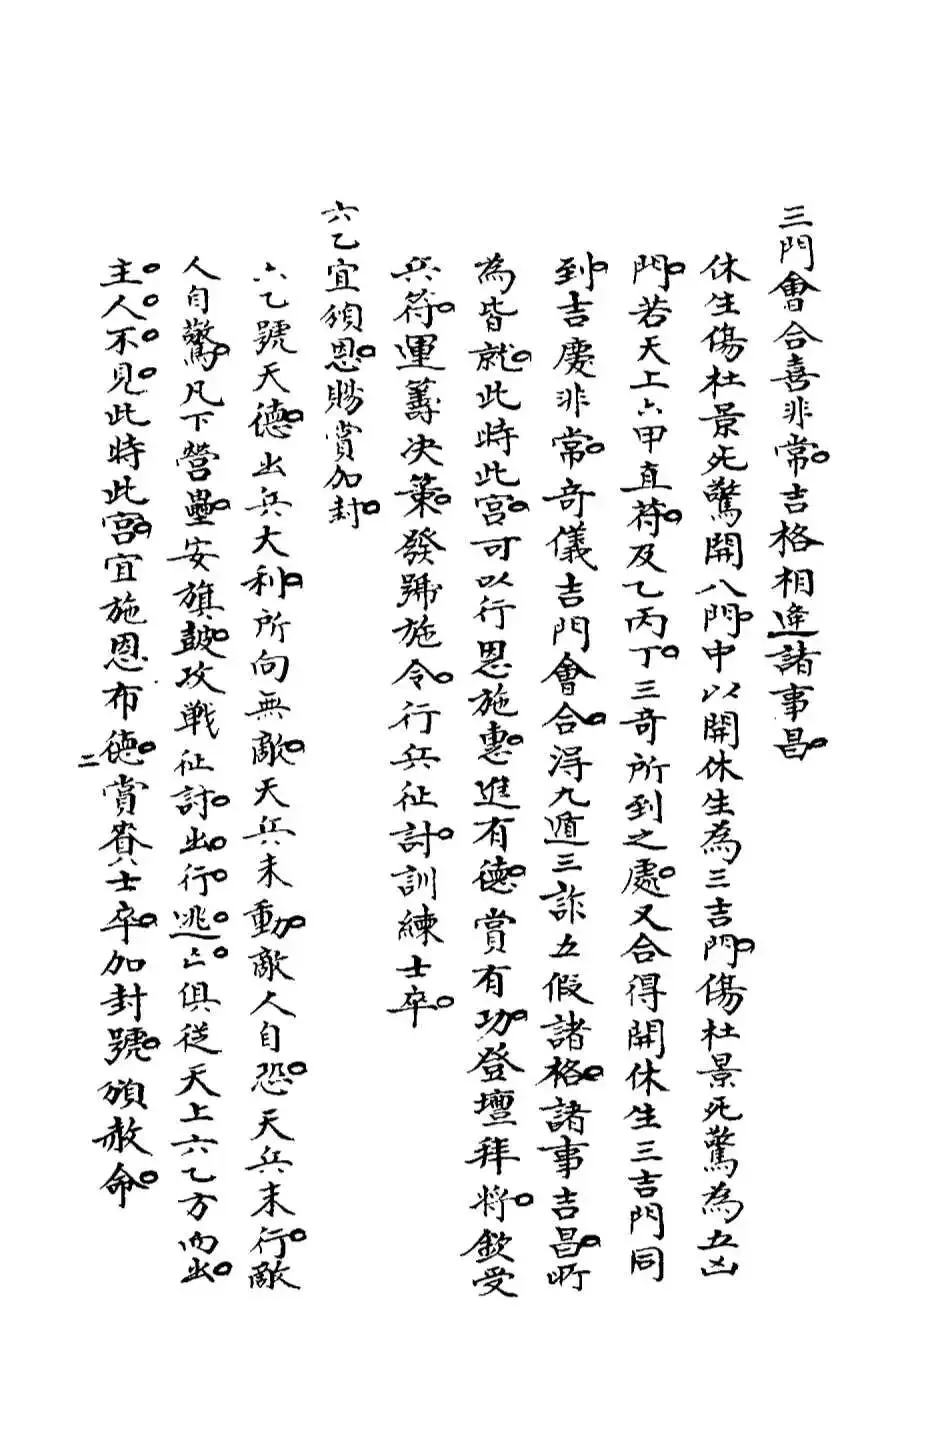 三門會合喜非常。吉格相逢諸事昌。
休生傷杜景死驚開八門。中以開休生為三吉門。傷杜景死驚為五凶
門。若天上六甲直符。及乙丙丁。三奇所到之處。又合得開休生三吉門同
到。吉慶非常。奇儀吉門會合。得九遁三詐五假諸格。諸事吉昌。所
為皆就。此時此宮。可以行恩施惠。進有德。賞有功。登壇拜將。欽受
兵符。運籌决策。發號施令。行兵征討。訓練士卒。
六乙宜頒恩。賜賞加封。
六乙號天德。出兵大利。所向無敵。天兵未動。敵人自恐。天兵未行。敵
人自驚。凡下營壘。安旗鼓。攻戰征討。出。行。逃。亡。俱從天上六乙方而出。
主。人。不。見。此時此宮。宜施恩布德。賞賚士卒。加封號。頒赦命。
二